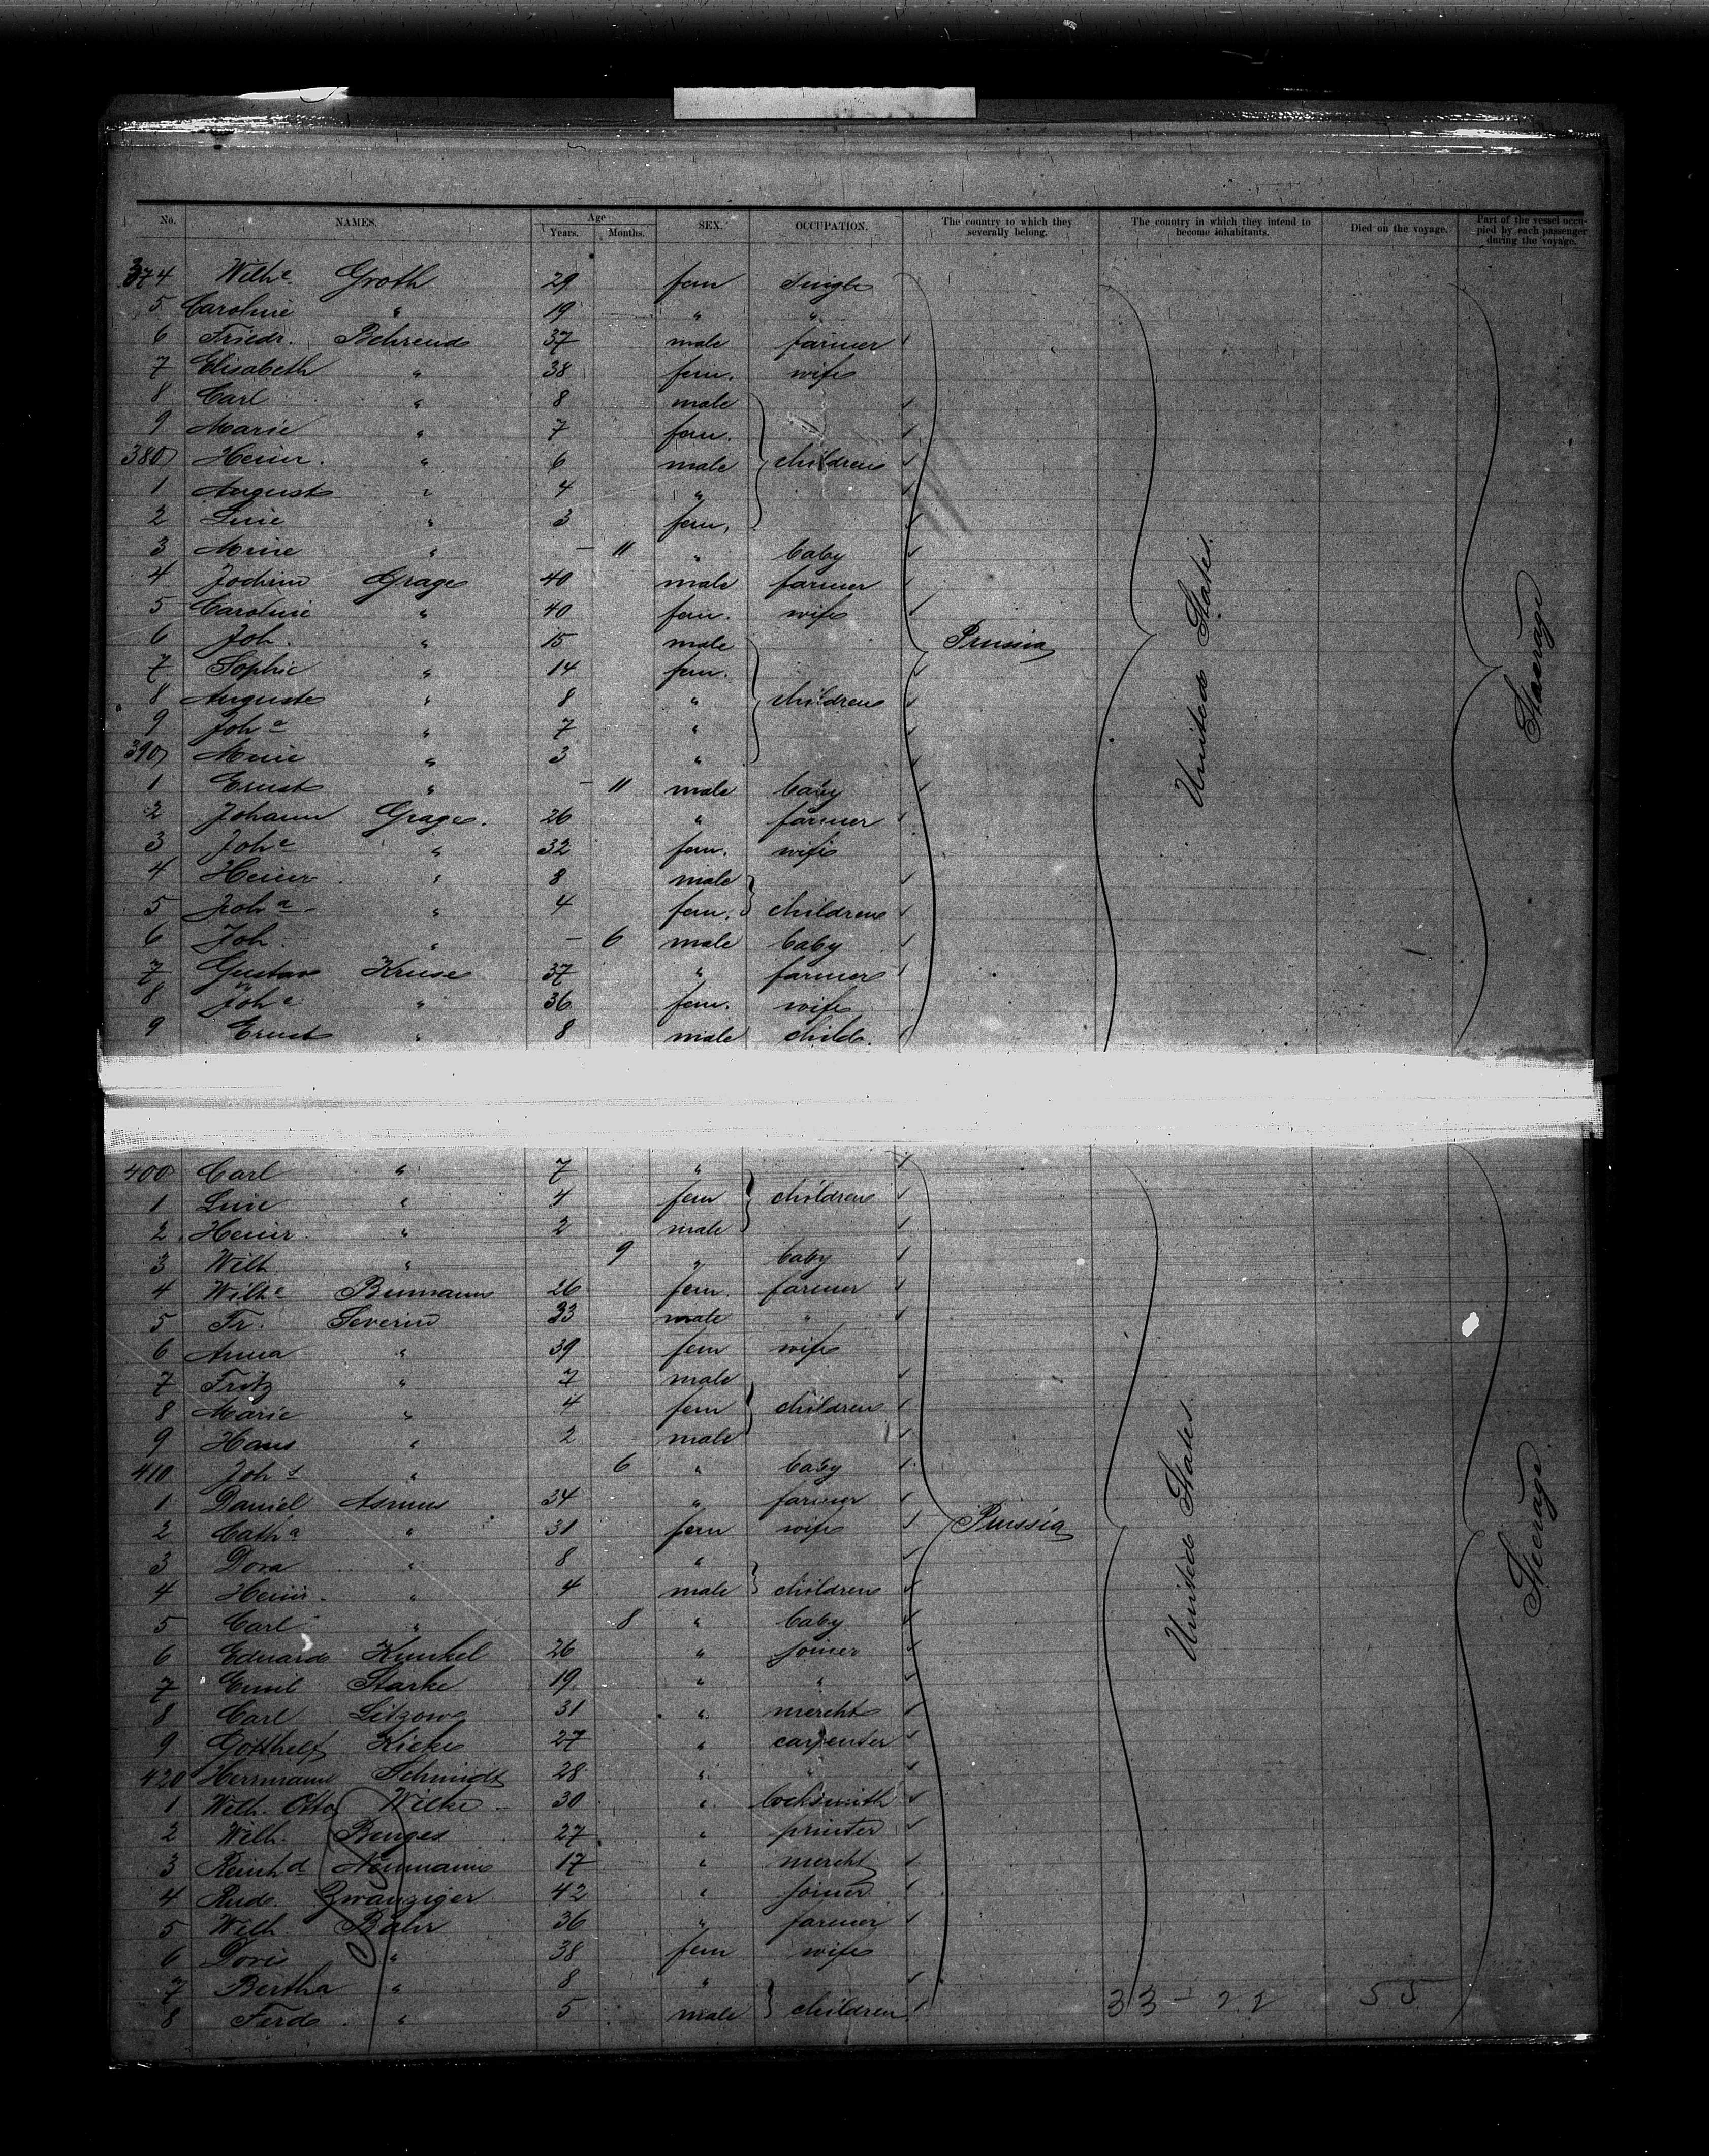 No. NAMES. Age Years. Months. SEX. OCCUPATION. The country to which they severally belong. The country in which they intend to become inhabitants. Died on the voyage. Part of the vessel occupied by each passenger during the voyage.
374 Wilhe Groth 29 fem single
5 Caroline " 19 " "
6 Friedr. Behrend 37 male farmer
7 Elisabeth " 38 fem. wife
8 Carl " 8 male
9 Marie " 7 fem.
380 Heinr. " 6 male children
1 August " 4 "
2 Line " 3 fem.
3 Mine " - 11 " baby
4 Jochim Grage 40 male farmer
5 Caroline " 40 fem. wife
6 Joh. " 15 male Prussia United States. Steerage
7 Sophie " 14 fem.
8 Auguste " 8 " children
9 Joha " 7 "
390 Mine " 3 "
1 Ernst " - 11 male baby
2 Johann Grage. 26 " farmer
3 Johe " 32 fem. wife
4 Heinr " 8 male
5 Joha " 4 fem. children
6 Joh. " - 6 male baby
7 Gustav Kruse 37 " farmer
8 Johe " 36 fem. wife
9 Ernst " 8 male child.
400 Carl " 7 "
1 Line " 4 fem children
2 Heinr. " 2 male
3 Wilh " 9 " baby
4 Wilhe 26 fem. farmer
5 Fr. Severin 33 male "
6 Anna " 39 fem wife
7 Fritz " 7 male
8 Marie " 4 fem children
9 Hans " 2 male
410 Johs " 6 " baby
1 Daniel Asmus 34 " farmer
2 Catha " 31 fem wife Prussia United States. Steerage
3 Dora " 8 "
4 Heinr. " 4 male children
5 Carl " 8 " baby
6 Eduard Kunkel 26 " joiner
7 Emil Starke 19 " "
8 Carl Litzow 31 " mercht
9 Gotthelf 27 " carpenter
420 Herrmann Schmidt 28 " "
1 Wilh. Otto Wilke 30 " locksmith
2 Wilh. Benges 27 " printer
3 Reinhd Neumann 17 " mercht
4 Rud. Zwanziger 42 " joiner
5 Wilh. Bahr 36 " farmer
6 Doris " 38 fem wife
7 Bertha " 8 "
8 Ferd. " 5 male children 33 - 22 55